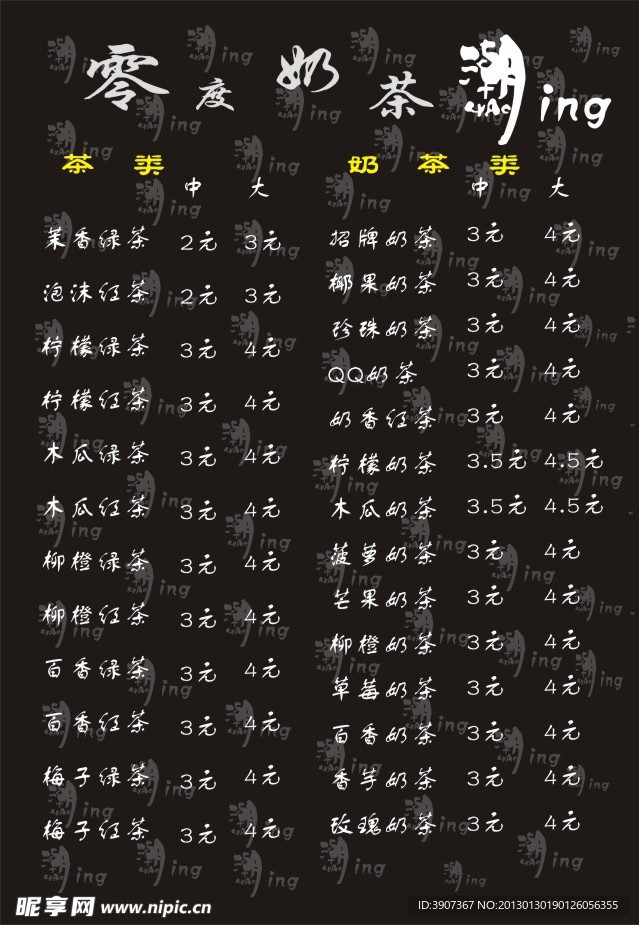 零度奶茶 潮ing
茶类
中 大
茉香绿茶 2元 3元
泡沫红茶 2元 3元
柠檬绿茶 3元 4元
柠檬红茶 3元 4元
木瓜绿茶 3元 4元
木瓜红茶 3元 4元
柳橙绿茶 3元 4元
柳橙红茶 3元 4元
百香绿茶 3元 4元
百香红茶 3元 4元
梅子绿茶 3元 4元
梅子红茶 3元 4元
奶茶类
中 大
招牌奶茶 3元 4元
椰果奶茶 3元 4元
珍珠奶茶 3元 4元
QQ奶茶 3元 4元
奶香红茶 3元 4元
柠檬奶茶 3.5元 4.5元
木瓜奶茶 3.5元 4.5元
菠萝奶茶 3元 4元
芒果奶茶 3元 4元
柳橙奶茶 3元 4元
草莓奶茶 3元 4元
百香奶茶 3元 4元
香芋奶茶 3元 4元
玫瑰奶茶 3元 4元
昵享网 www.nipic.cn
ID:3907367 NO:20130130190126056355